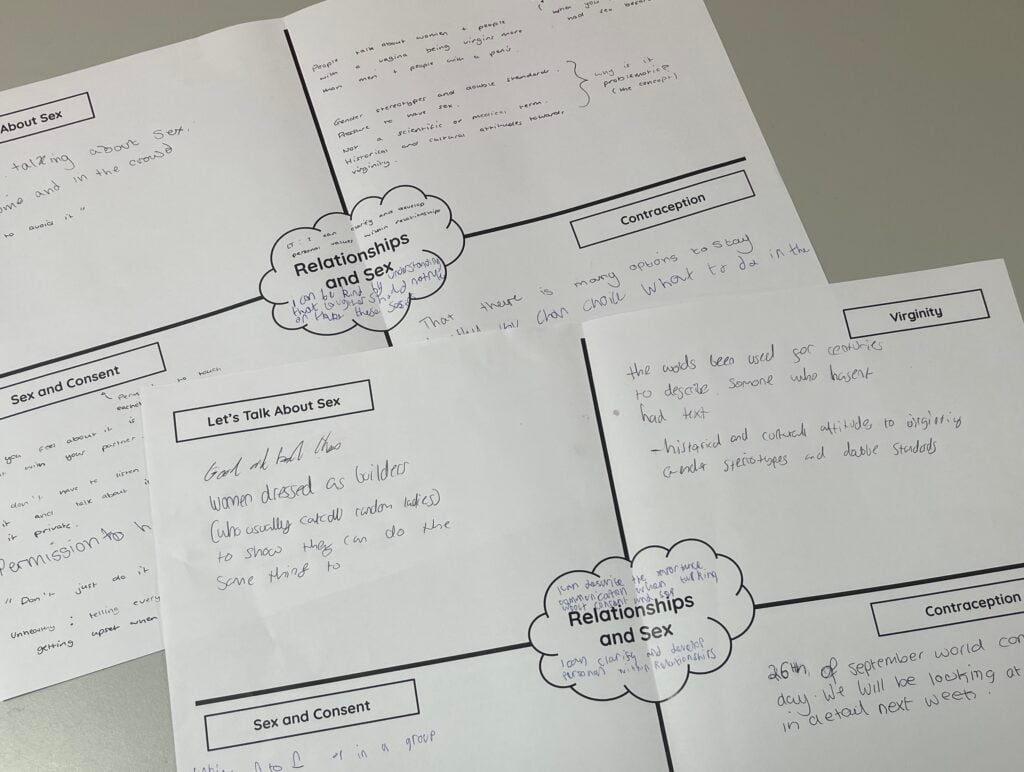 About Sex
talking about sex.
and in the crowd
to avoid it"
when you
had sex before
People talk about women + people
with a vagina being virgins more
than men + people with a penis.
Gender stereotypes and double standards.
Pressure to have sex.
Not a scientific or medical term.
Historical and cultural attitudes towards
virginity.
why is it
problematic?
(the concept)
Contraception
That there is many options to stay
this chan choice whant to do in the
I can clarify and develop
personal values within relationships
Relationships
and Sex
I can be kind by understanding
that
Sex and Consent
to touch
you feel about it is
with your partner.
don't have to listen
it and talk about
it private.
Permission to h
"Don't just do it
Unhealthy : telling every
getting upset when
Let's Talk About Sex
women dressed as builders
(who usually catcall random ladies)
to show they can do the
same thing to
Virginity
the words been used for centuries
to describe somone who hasent
had text
- historical and cultural attitudes to virginity
Gender steriotypes and double standads
I can describe the
communication when talking
about consent and sex
Relationships
and Sex
I can clarify and develop
personal within Relationships
Sex and Consent
or in a group
Contraception
26th of september world con
day. We will be looking at
in detail next week.